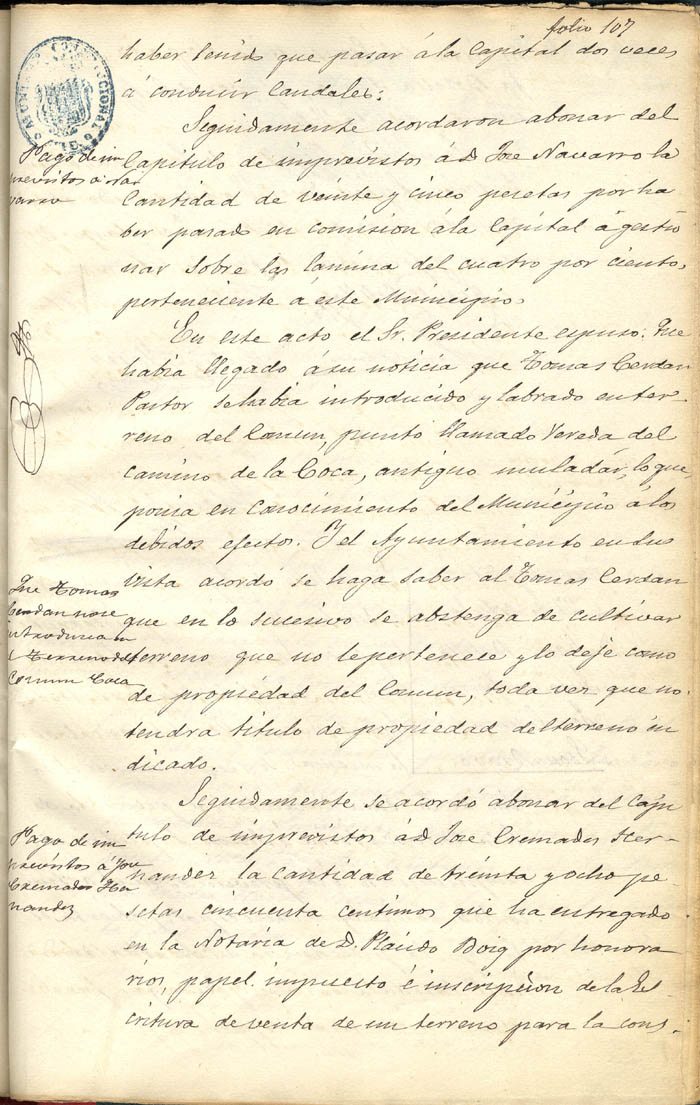 folio 107
haber tenido que pasar á la Capital dos veces
á conducir Caudales:
Seguidamente acordaron abonar del
Capitulo de imprevistos á D. Jose Navarro la
Cantidad de veinte y cinco pesetas por ha
ber pasado en comision á la Capital á gestio
nar sobre las lamina del cuatro por ciento,
perteneciente á este Municipio.
Pago de im
previstos á Na
varro
En este acto el Sr. Presidente espuso: Que
habia llegado á su noticia que Tomas Cerdan
Pastor se habia introducido y labrado en ter-
reno del Comun, punto llamado Vereda del
camino de la Coca, antiguo muladár, lo que
ponia en conocimiento del Municipio á los
debidos efectos. Y el Ayuntamiento en su
vista acordó se haga saber al Tomas Cerdan
que en lo sucesivo se abstenga de cultivar
terreno que no le pertenece y lo deje como
de propiedad del Comun, toda vez que no
tendra titulo de propiedad del terreno in
dicado.
Que Tomas
Cerdan no se
introduzca en
el Terreno del
Comun Coca
Seguidamente se acordó abonar del Capi
tulo de imprevistos á D. Jose Cremades Her-
nandez la cantidad de treinta y ocho pe-
setas cincuenta centimos que ha entregado
en la Notaria de D. Placido Boig por honora
rios, papel, impuesto é inscripcion de la Es
critura de venta de un terreno para la cons-
Pago de im
previstos á Jose
Cremades He
nandez